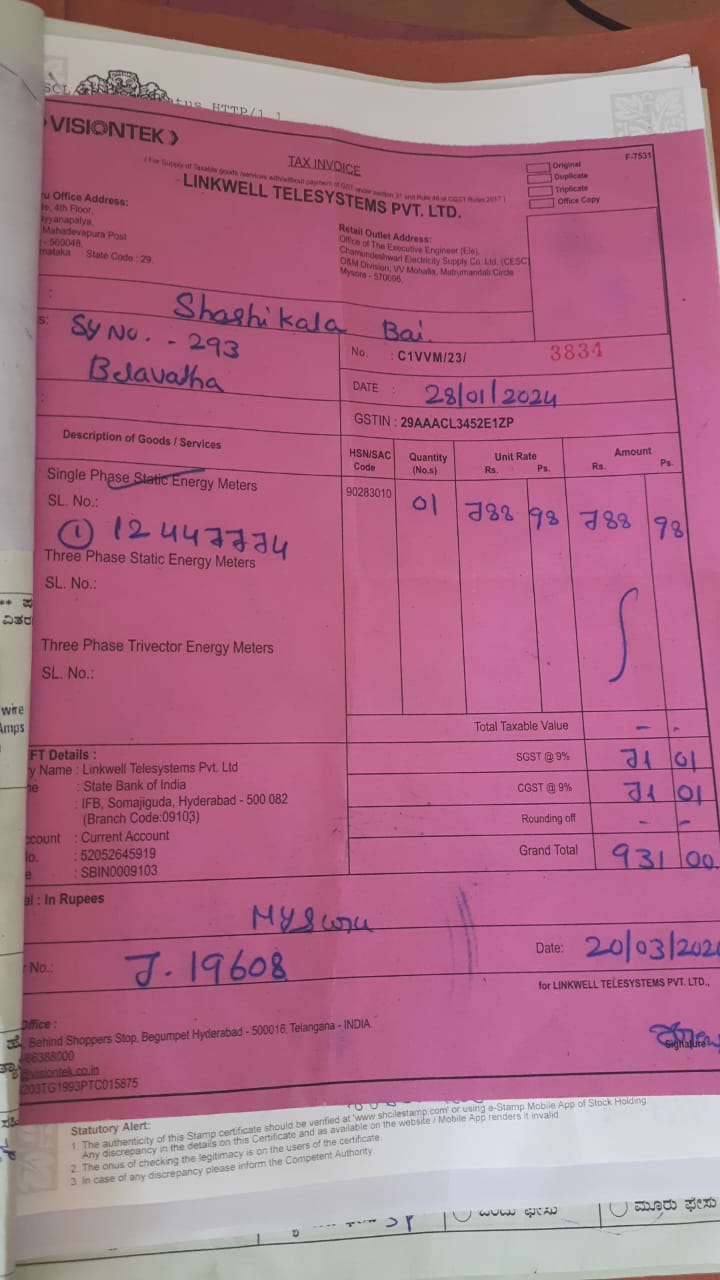 VISIONTEK
TAX INVOICE
F-7531
( For Supply of Taxable goods /services with/without payment of GST under section 31 and Rule 46 of CGST Rules 2017 )
LINKWELL TELESYSTEMS PVT. LTD.
Original
Duplicate
Triplicate
Office Copy
u Office Address:
4th Floor,
yyanapalya,
Mahadevapura Post
- 560048.
nataka State Code : 29
Retail Outlet Address:
Office of The Executive Engineer (Ele),
Chamundeshwari Electricity Supply Co. Ltd. (CESC)
O&M Division, VV Mohalla, Matrumandali Circle
Mysore - 570006.
Shashikala Bai.
s: Sy No. - 293
Belavatha
No. : C1VVM/23/ 3834
DATE : 28/01/2024
GSTIN : 29AAACL3452E1ZP
Description of Goods / Services
HSN/SAC Code
Quantity (No.s)
Unit Rate Rs. Ps.
Amount Rs. Ps.
Single Phase Static Energy Meters
90283010 01 788 98 788 98
SL. No.:
① 12447774
Three Phase Static Energy Meters
SL. No.:
Three Phase Trivector Energy Meters
SL. No.:
Total Taxable Value - -
FT Details :
y Name : Linkwell Telesystems Pvt. Ltd
SGST @ 9% 71 01
: State Bank of India
: IFB, Somajiguda, Hyderabad - 500 082
(Branch Code:09103)
CGST @ 9% 71 01
Rounding off - -
ccount : Current Account
o. : 52052645919
e : SBIN0009103
Grand Total 931 00
al : In Rupees
Mysuru
No.: J. 19608
Date: 20/03/202
for LINKWELL TELESYSTEMS PVT. LTD.,
Signature
Office :
Behind Shoppers Stop, Begumpet Hyderabad - 500016, Telangana - INDIA
66388000
visiontek.co.in
203TG1993PTC015875
Statutory Alert:
1. The authenticity of this Stamp certificate should be verified at 'www.shcilestamp.com' or using e-Stamp Mobile App of Stock Holding.
Any discrepancy in the details on this Certificate and as available on the website / Mobile App renders it invalid.
2. The onus of checking the legitimacy is on the users of the certificate.
3. In case of any discrepancy please inform the Competent Authority.
wire
Amps
ಮೂರು ಫೇಸು